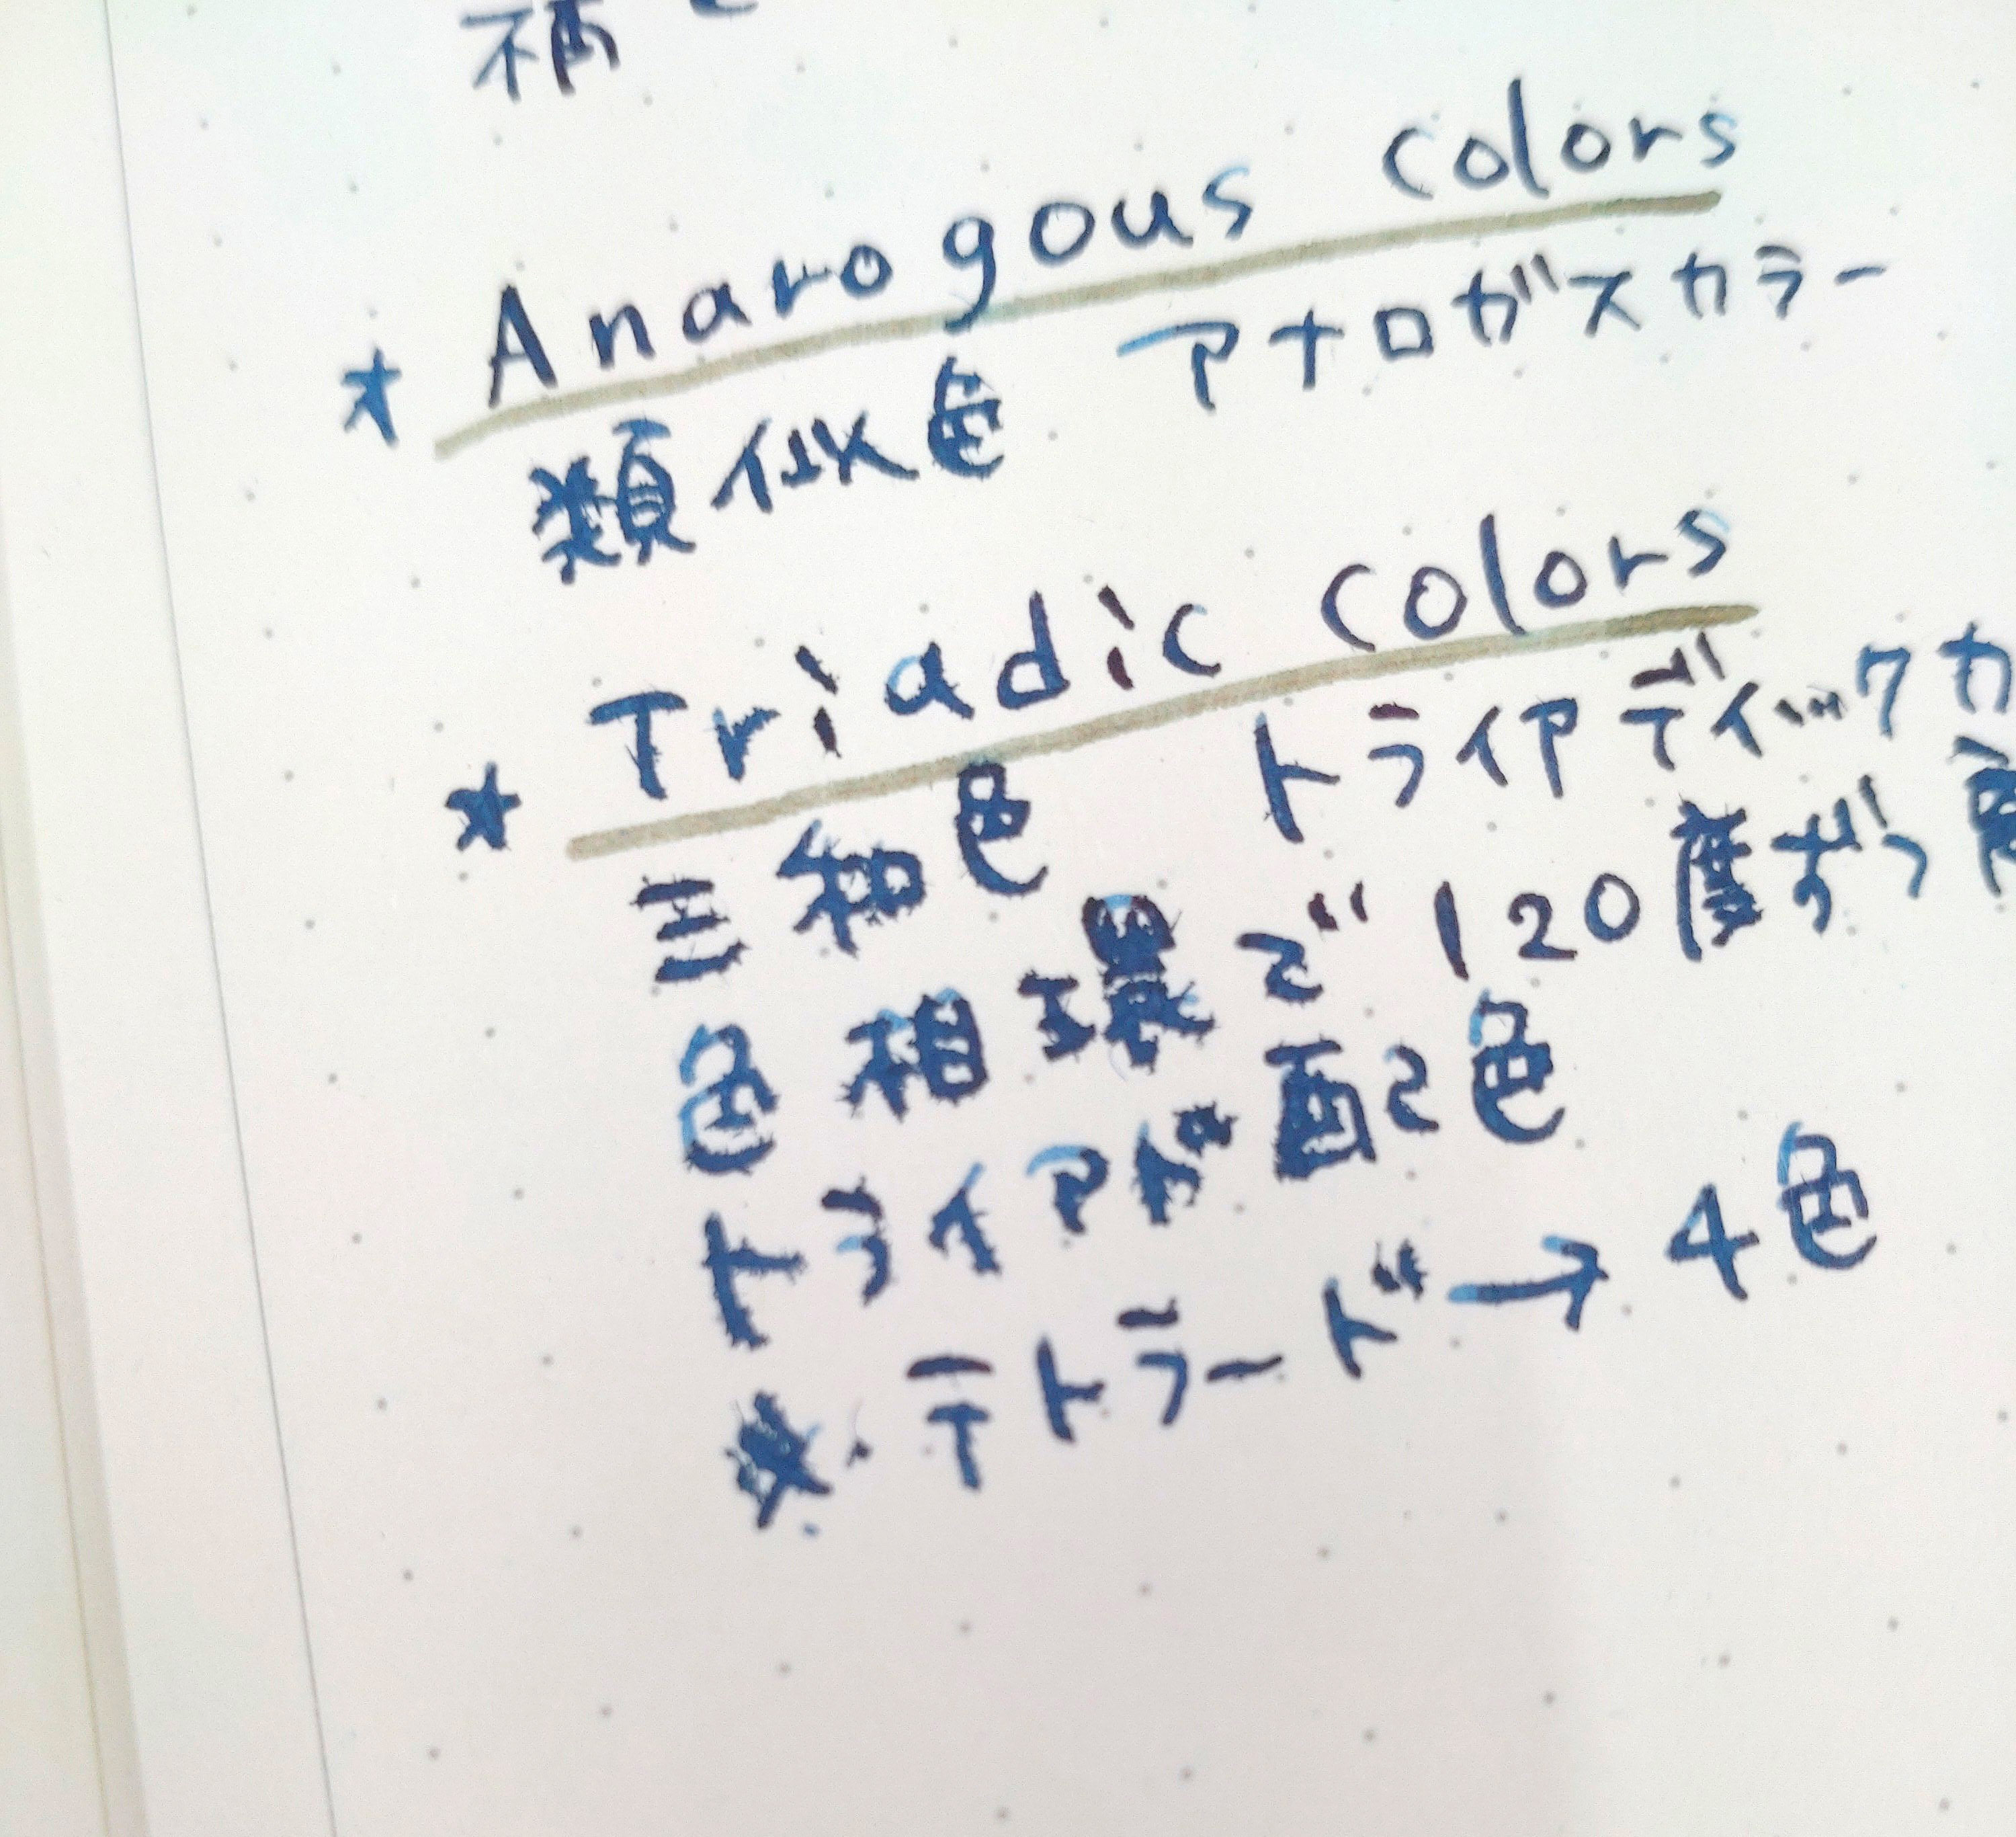 柄
★ Anarogous colors
類似色 アナロガスカラー
★ Triadic colors
三和色 トライアディックカ
色相環で120度ずつ
トライアド配色
※ テトラード→4色